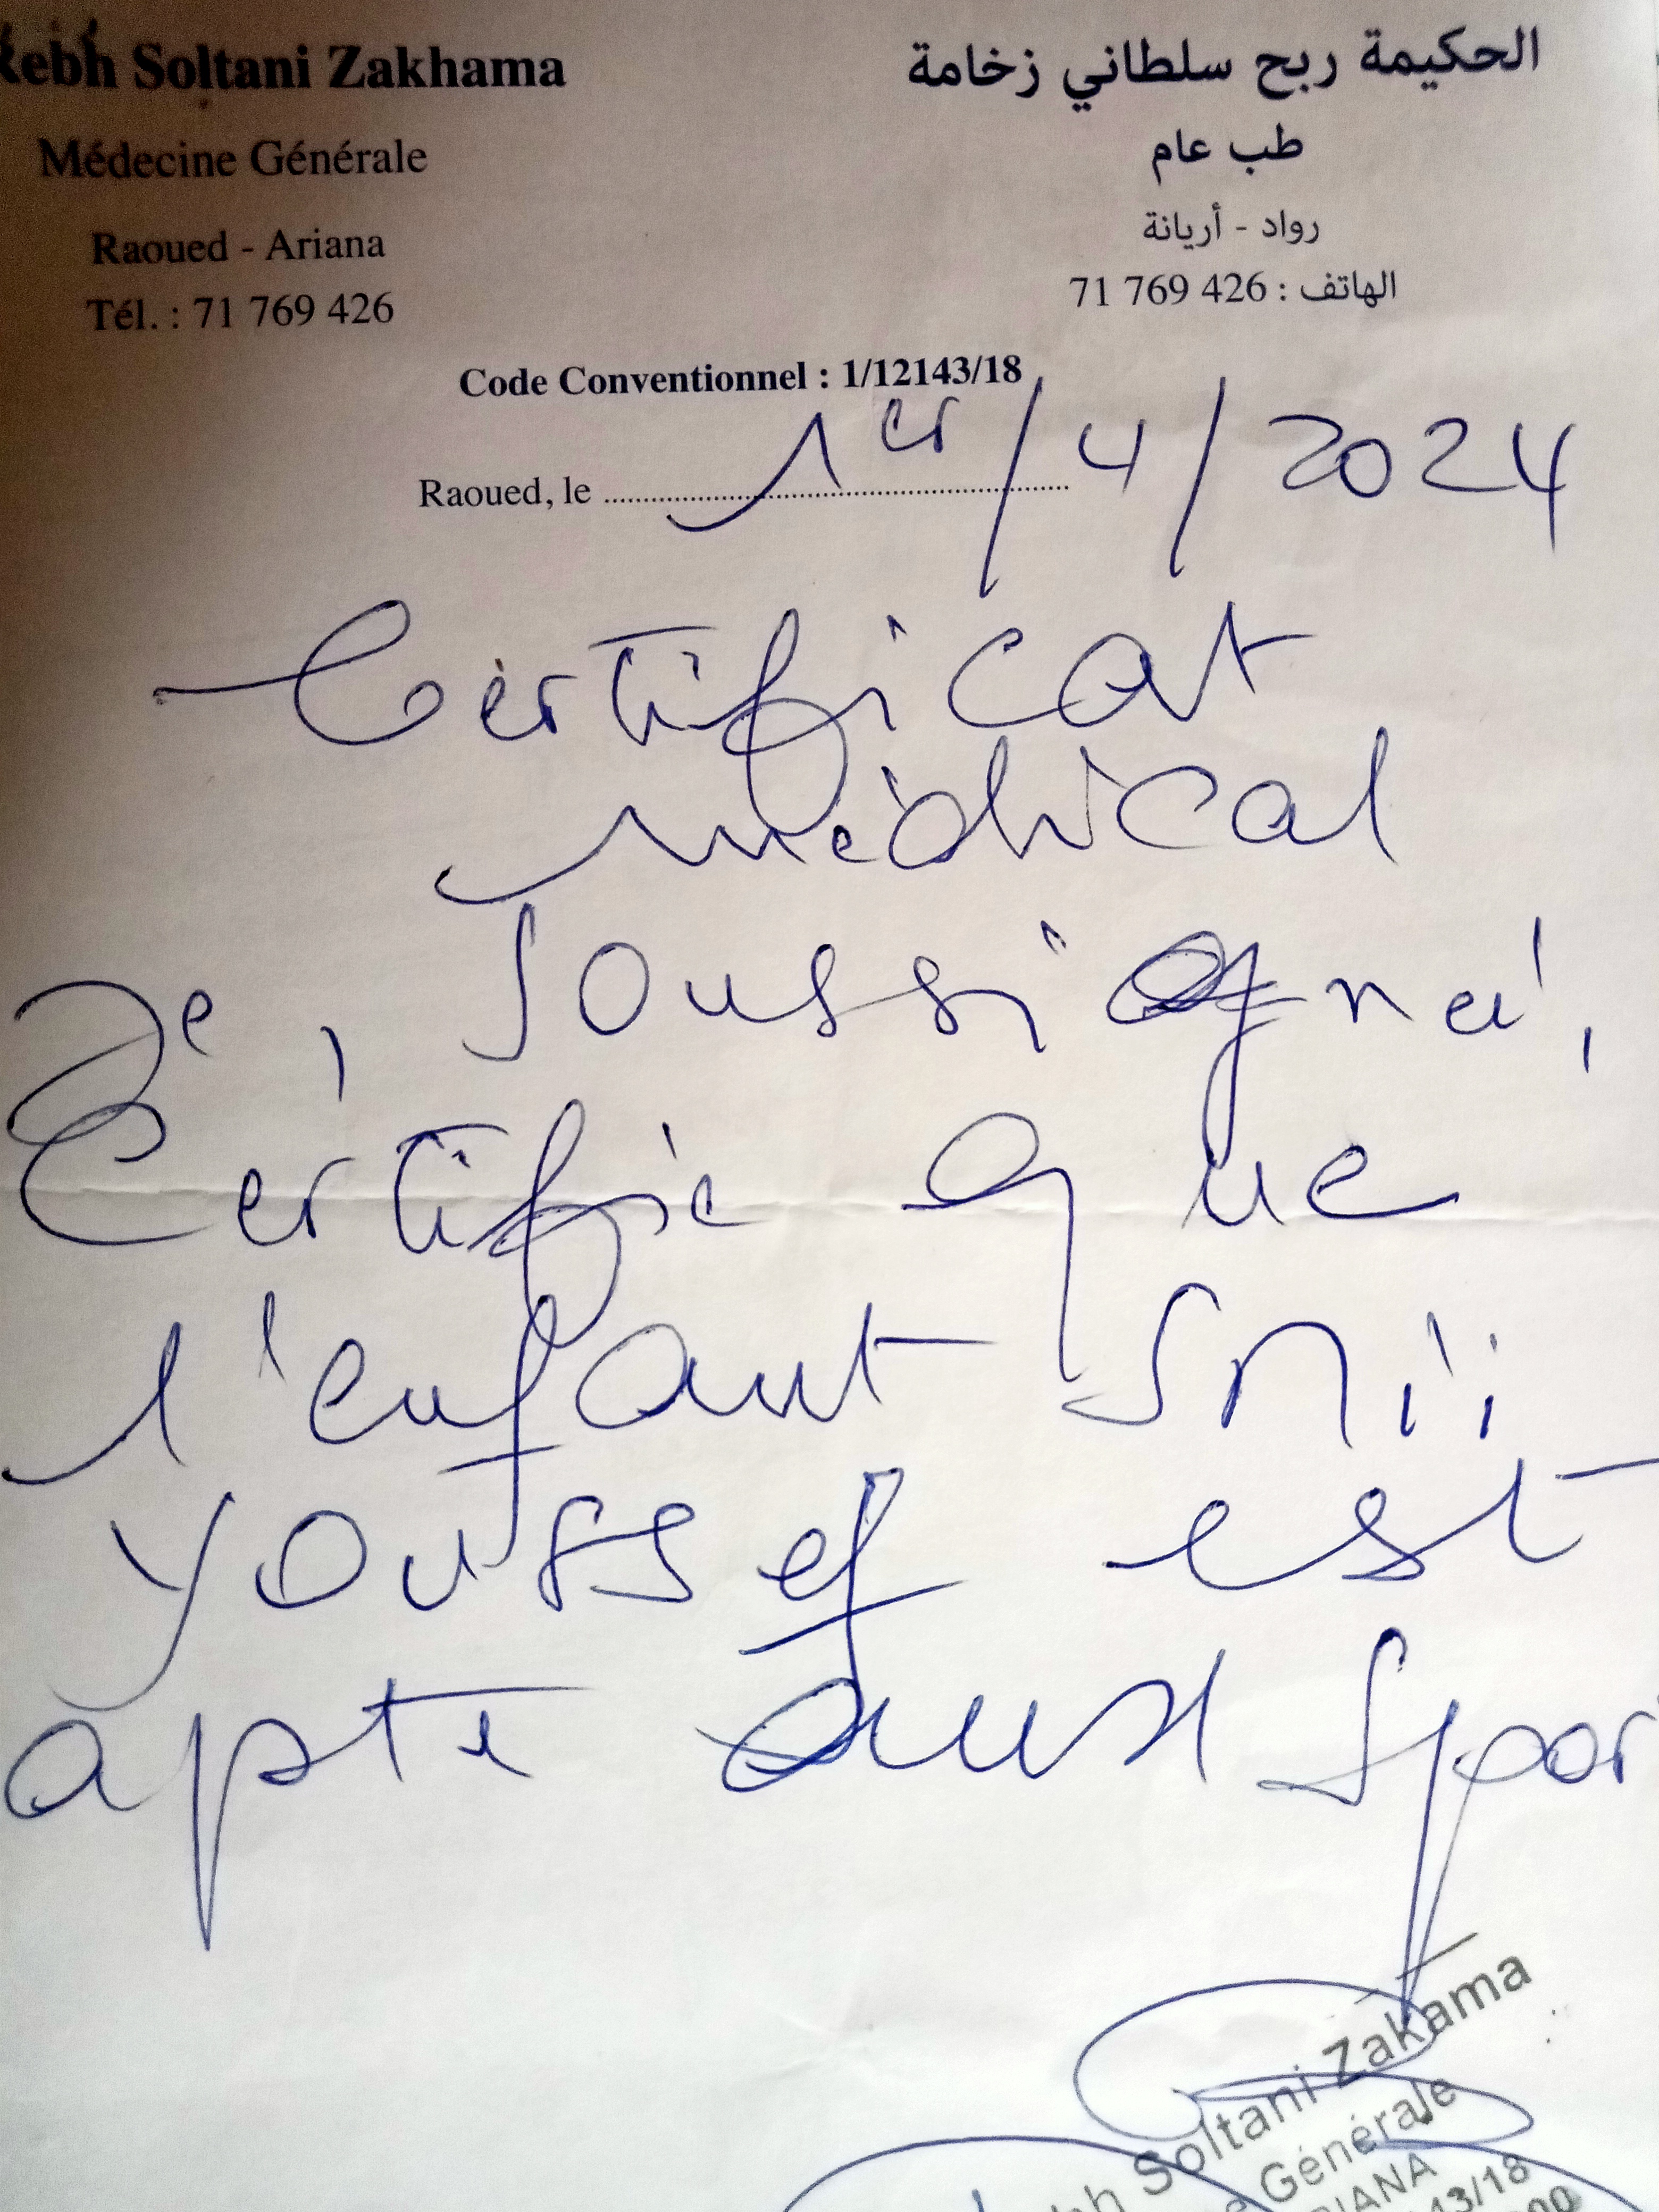 Rebh Soltani Zakhama
Médecine Générale
Raoued - Ariana
Tél. : 71 769 426
الحكيمة ربح سلطاني زخامة
طب عام
رواد - أريانة
الهاتف : 426 769 71
Code Conventionnel : 1/12143/18
Raoued, le 1er/4/2024
Certificat
médical
Je, soussigné,
Certifie que
l'enfant
Youssef est
apte aux Spor
Soltani Zakama
Générale